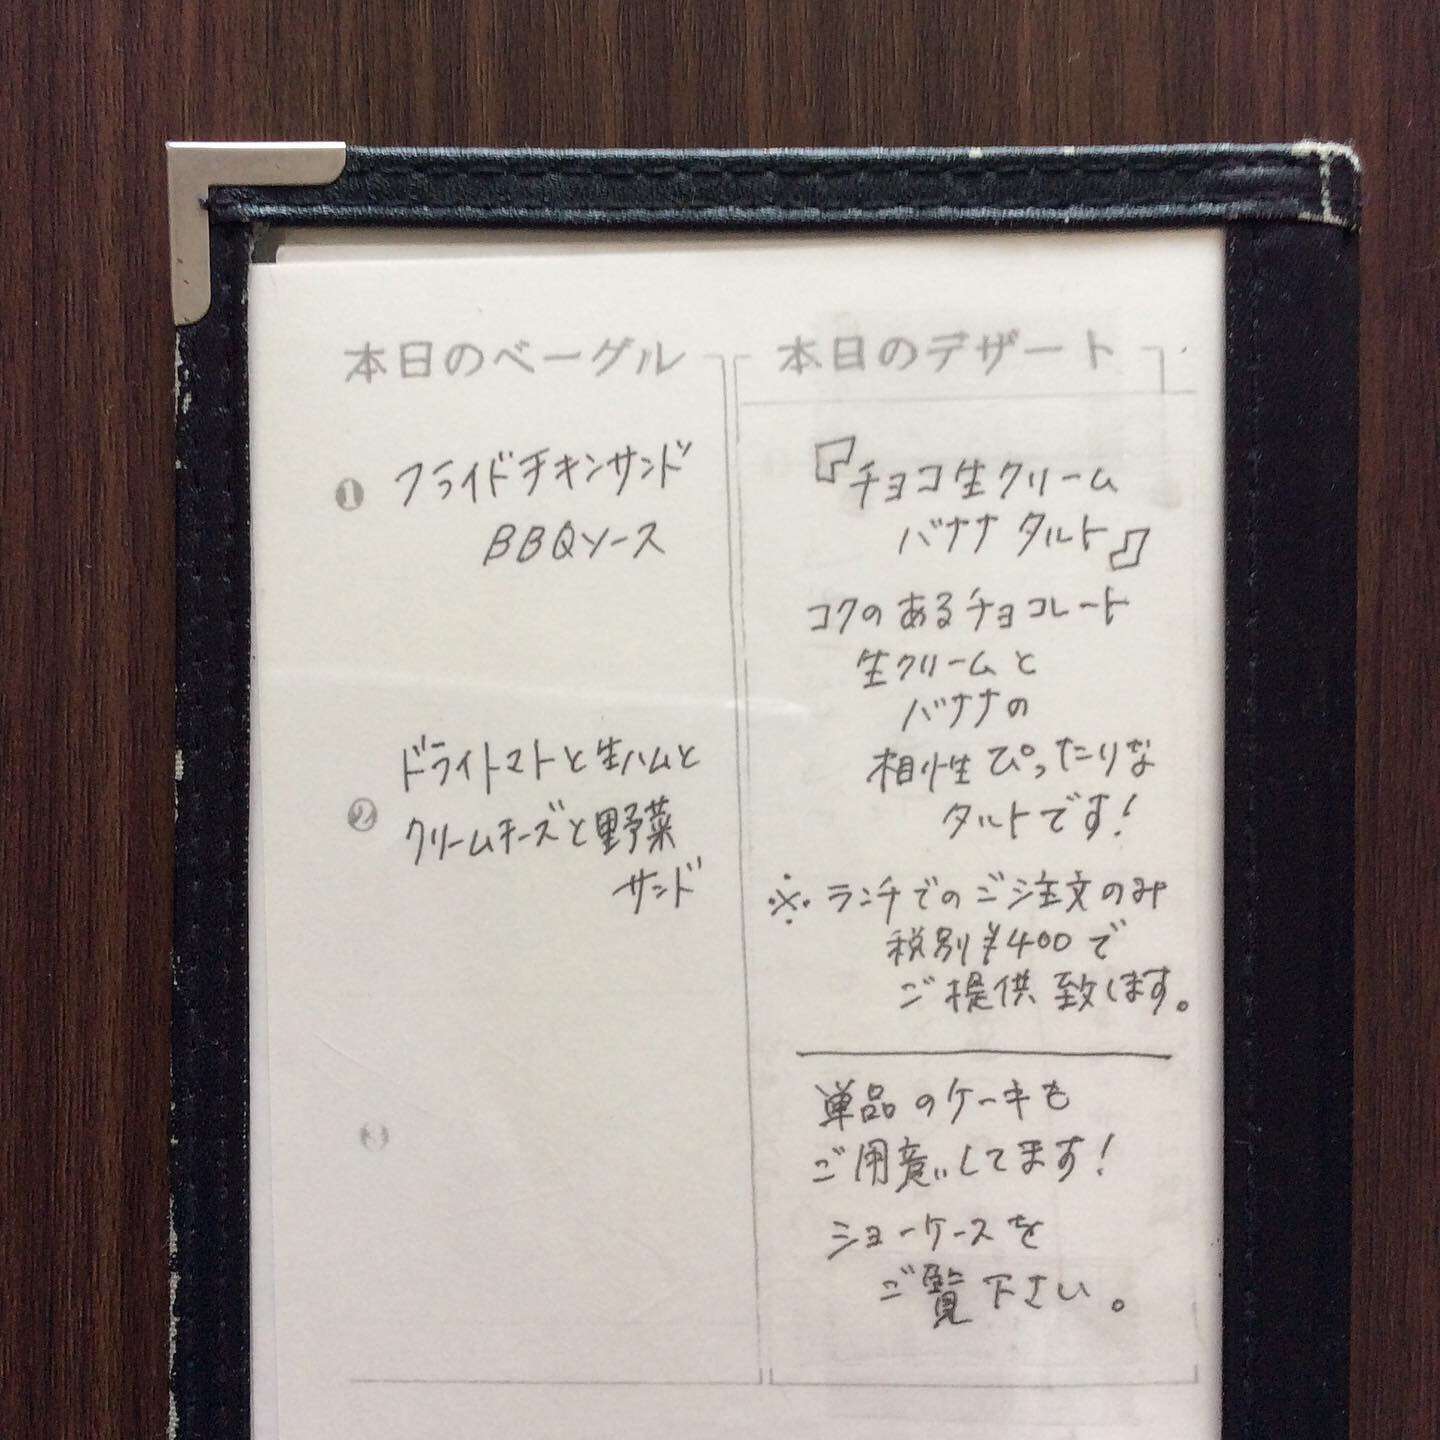 本日のベーグル
❶ フライドチキンサンド
BBQソース
❷ ドライトマトと生ハムと
クリームチーズと野菜
サンド
❸
本日のデザート
『チョコ生クリーム
バナナタルト』
コクのあるチョコレート
生クリームと
バナナの
相性ぴったりな
タルトです!
※ランチでのご注文のみ
税別¥400で
ご提供致します。
単品のケーキも
ご用意してます!
ショーケースを
ご覧下さい。